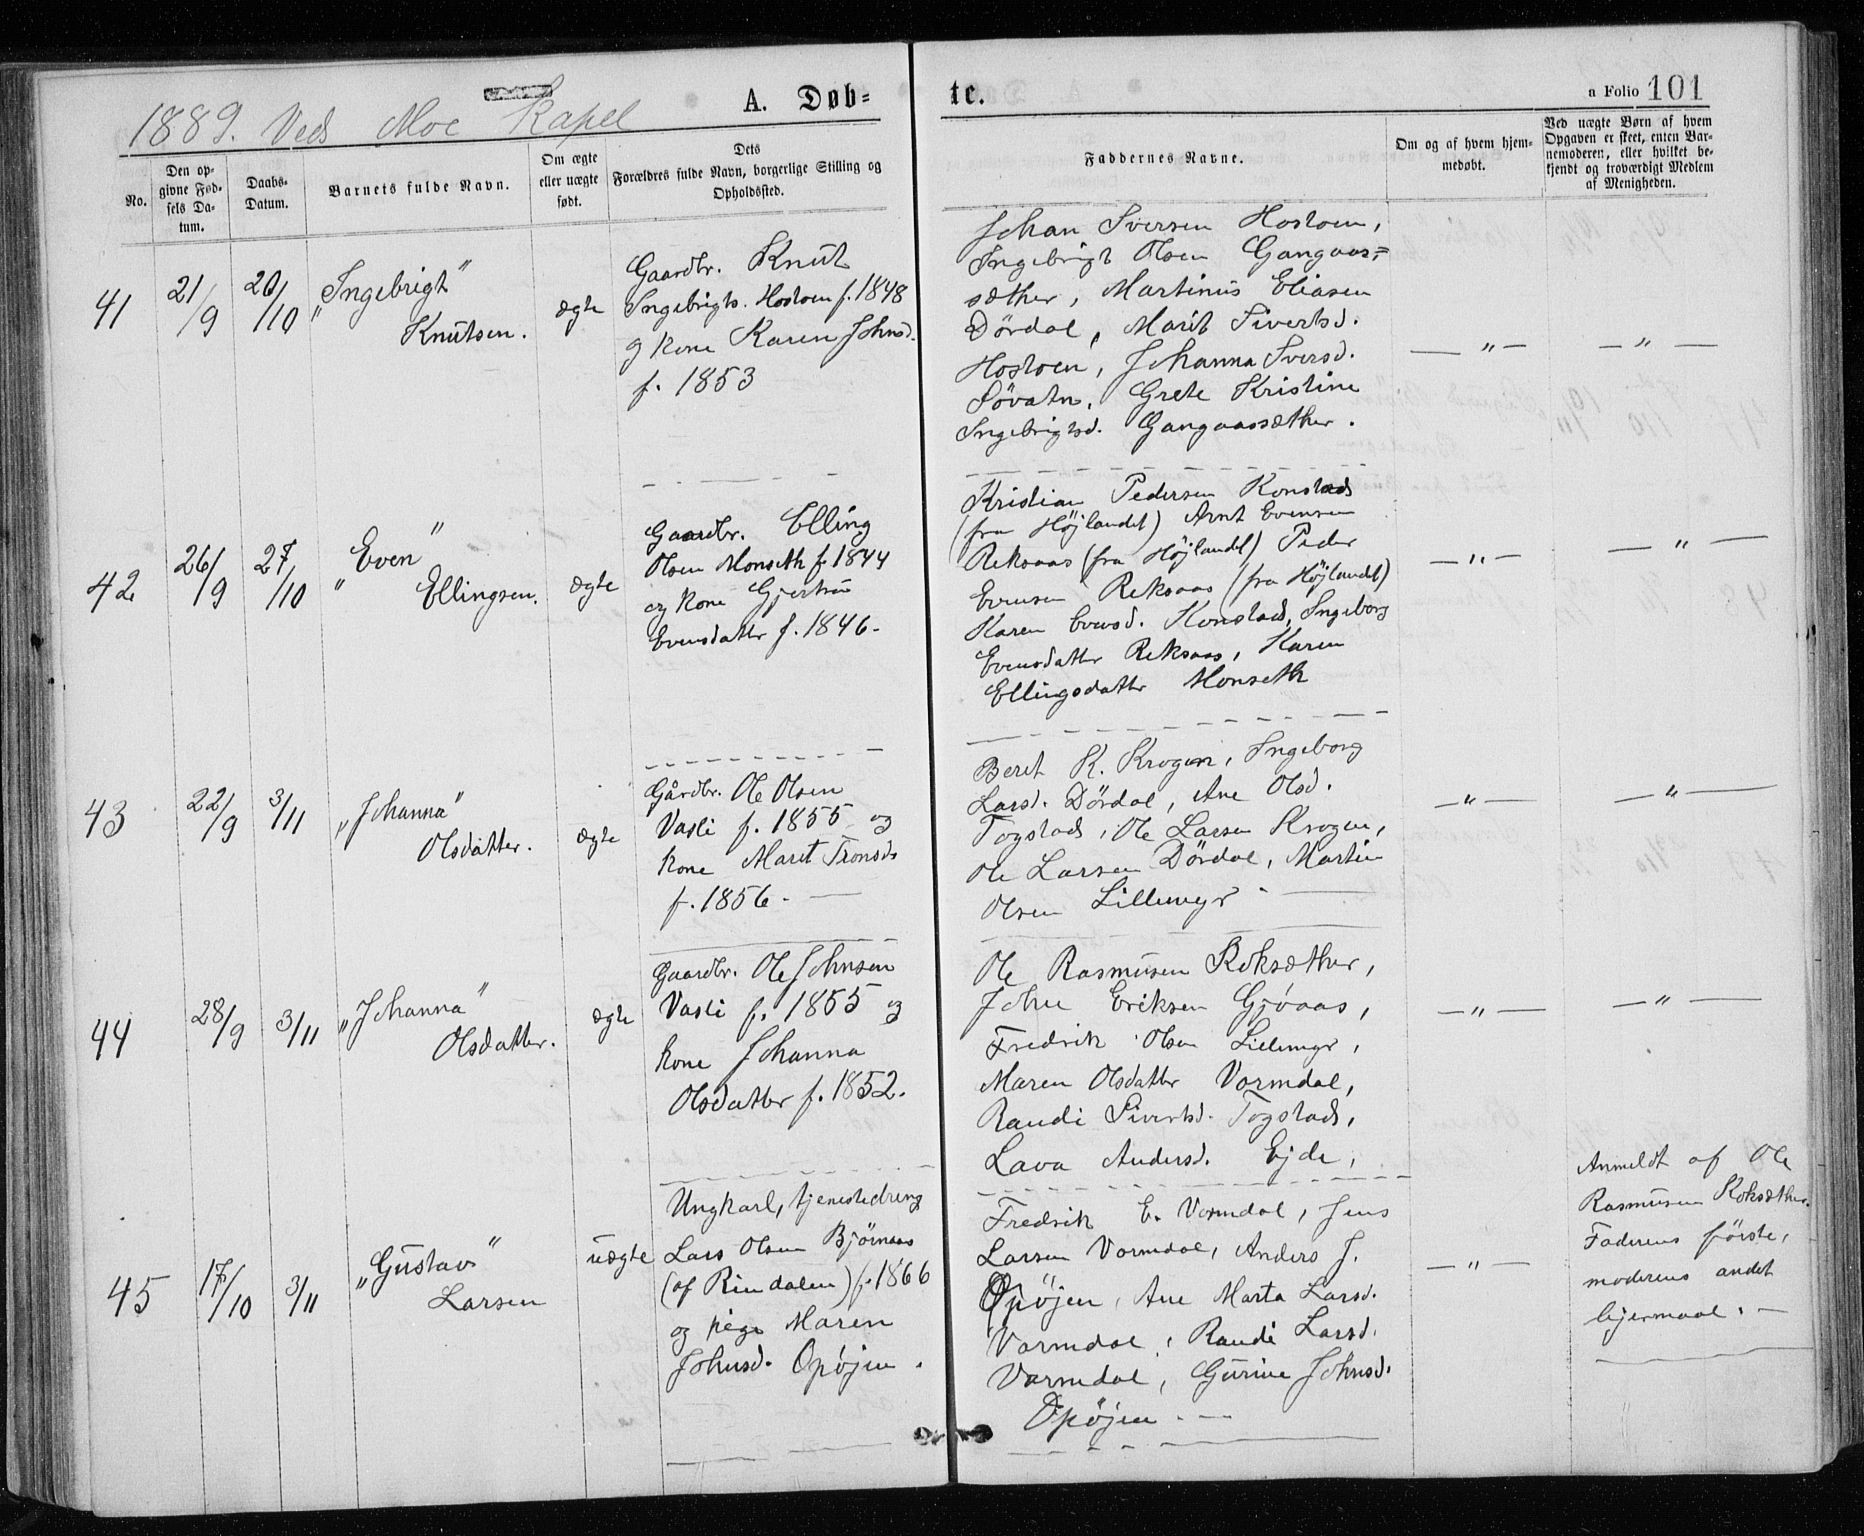 1889. Veds Moe Kapel
A. Døb-
te.
a Folio 101
No.
Den op-
givne Fød-
sels Da-
tum.
Daabs-
Datum.
Barnets fulde Navn.
Om ægte
eller uægte
født.
Dets
Forældres fulde Navn, borgerlige Stilling og
Opholdssted.
Faddernes Navne.
Om og af hvem hjem-
medøbt.
Ved uægte Børn af hvem
Opgaven er skeet, enten Bar-
nemoderen, eller hvilket be-
kjendt og troværdigt Medlem
af Menigheden.
41
21/9
20/10
"Ingebrigt"
Knutsen.
ægte
Gaardbr. Knut
Ingebrigts. Hostoen f. 1848
og kone Karen Johnsd.
f. 1853
Johan Iversen Hostoen,
Ingebrigt Olsen Gangaas=
sæther, Martinus Eliasen
Dördal, Marit Sivertsd.
Hostoen, Johanna Iversd.
Søvatn, Grete Kristine
Ingebrigtsd. Gangaassæther.
— " —
— " —
42
26/9
27/10
"Even"
Ellingsen.
ægte
Gaardbr. Elling
Olsen Monseth f. 1844
og kone Gjertru
Evensdatter f. 1846.
Kristian Pedersen Konstads
(fra Höjlandet) Arnt Evensen
Reksaas (fra Höjlandet) Peder
Evensen Reksaas (fra Höjlandet)
Karen Evensd. Konstads, Ingeborg
Evensdatter Reksaas, Karen
Ellingsdatter Monseth
— " —
— " —
43
22/9
3/11
"Johanna"
Olsdatter.
ægte
Gårdbr. Ole Olsen
Vasli f. 1855 og
kone Marit Tronsds
f. 1856. —
Beret K. Krogen, Ingeborg
Larsd. Dördal, Ane Olsd.
Togstads, Ole Larsen Krogen,
Ole Larsen Dördal, Martin
Olsen Lillemyr. —
— " —
— " —
44
28/9
3/11
"Johanna"
Olsdatter.
ægte
Gaardbr. Ole Johnsen
Vasli f. 1855 og
kone Johanna
Olsdatter f. 1852.
Ole Rasmusen Roksæther,
John Eriksen Gjöaas,
Fredrik Olsen Lillemyr,
Maren Olsdatter Vormdal,
Randi Sivertsd. Togstads,
Lava Andersd. Ejde,
— " —
— " —
45
17/10
3/11
"Gustav"
Larsen
uægte
Ungkarl, tjenestedreng
Lars Olsen Bjørnaas
(af Rindalen) f. 1866
og pige Maren
Johnsd. Opøjen.
Fredrik E. Vormdal, Jens
Larsen Vormdal, Anders J.
Opøjen, Ane Marta Larsd.
Vormdal, Randi Larsd.
Vormdal, Gurine Johnsd.
Opøjen. —
— " —
Anmeldt af Ole
Rasmusen Roksæther.
Faderens første,
moderens andet
lejermaal. —